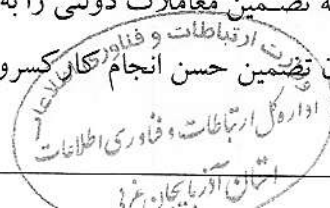 ه تضمین معاملات دولتی را به
ن تضمین حسن انجام کار کسرو
وزارت ارتباطات و فناوری اطلاعات
اداره کل ارتباطات و فناوری اطلاعات
استان آذربایجان غربی